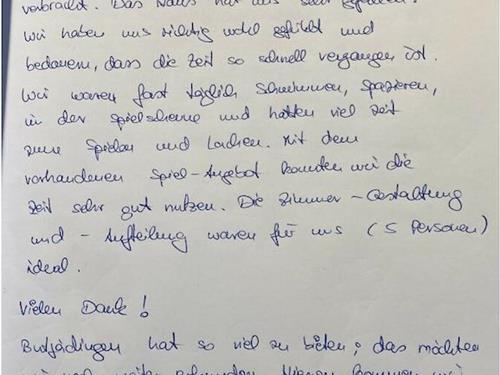 verbracht. Das Haus hat uns sehr gefallen.
Wir haben uns richtig wohl gefühlt und
bedauern, dass die Zeit so schnell vergangen ist.
Wir waren fast täglich Schwimmen, Spazieren,
in der Spielscheune und hatten viel Zeit
zum Spielen und Lachen. Mit dem
vorhandenen Spiel-Angebot konnten wir die
Zeit sehr gut nutzen. Die Zimmer-Gestaltung
und -Aufteilung waren für uns (5 Personen)
ideal.
Vielen Dank!
Butjadingen hat so viel zu bieten; das möchten